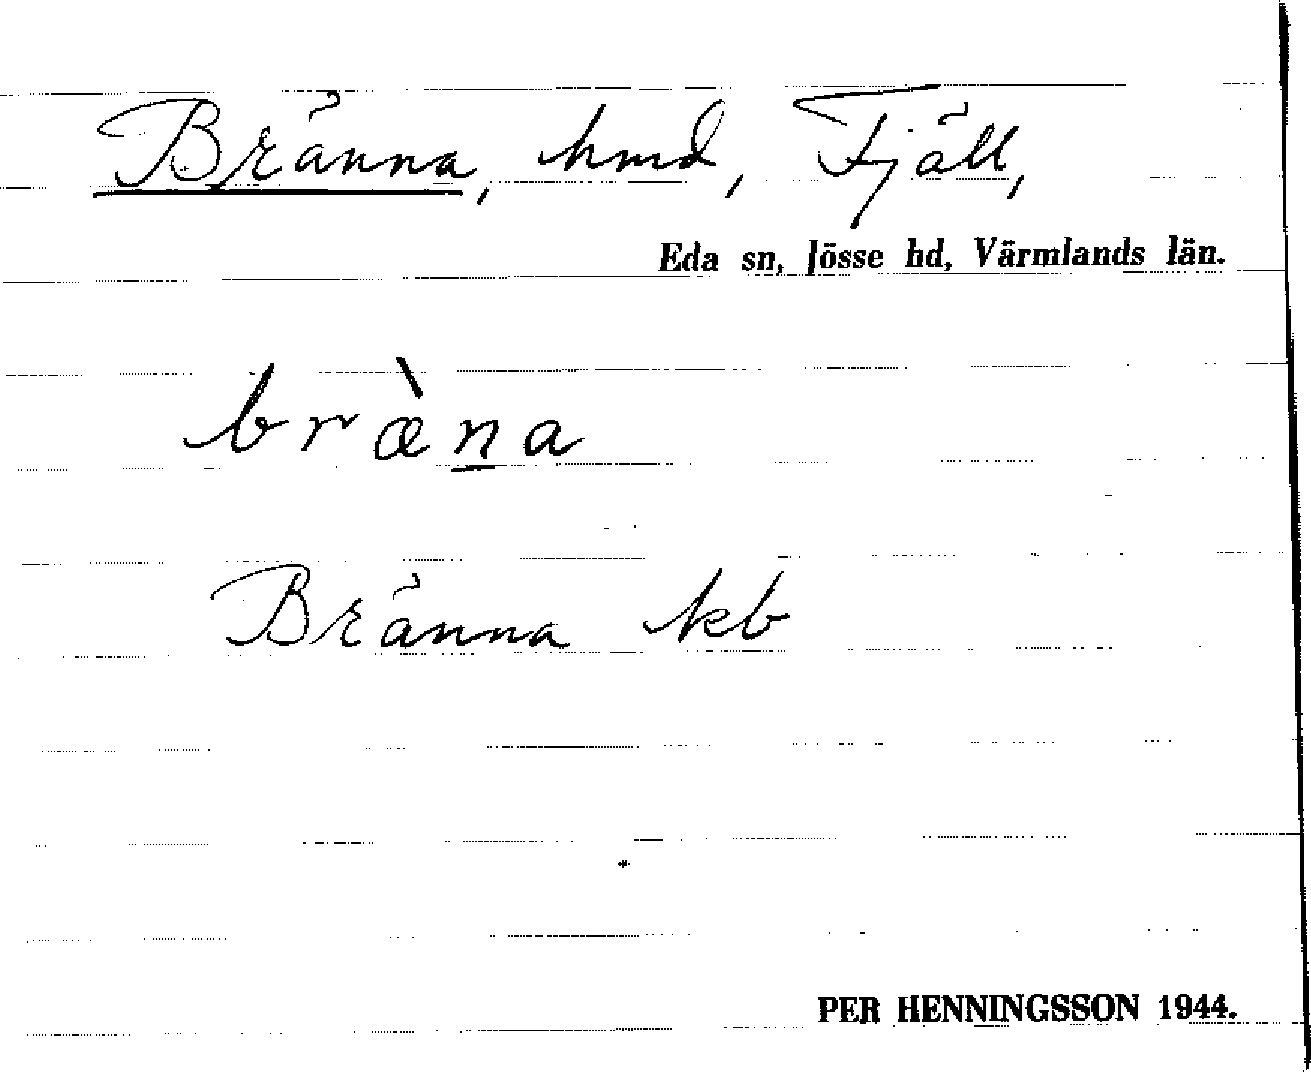 Bränna, hmd, Fjäll,
Eda sn, Jösse hd, Värmlands län.
bræ̀n̲a
Bränna kb
PER HENNINGSSON 1944.